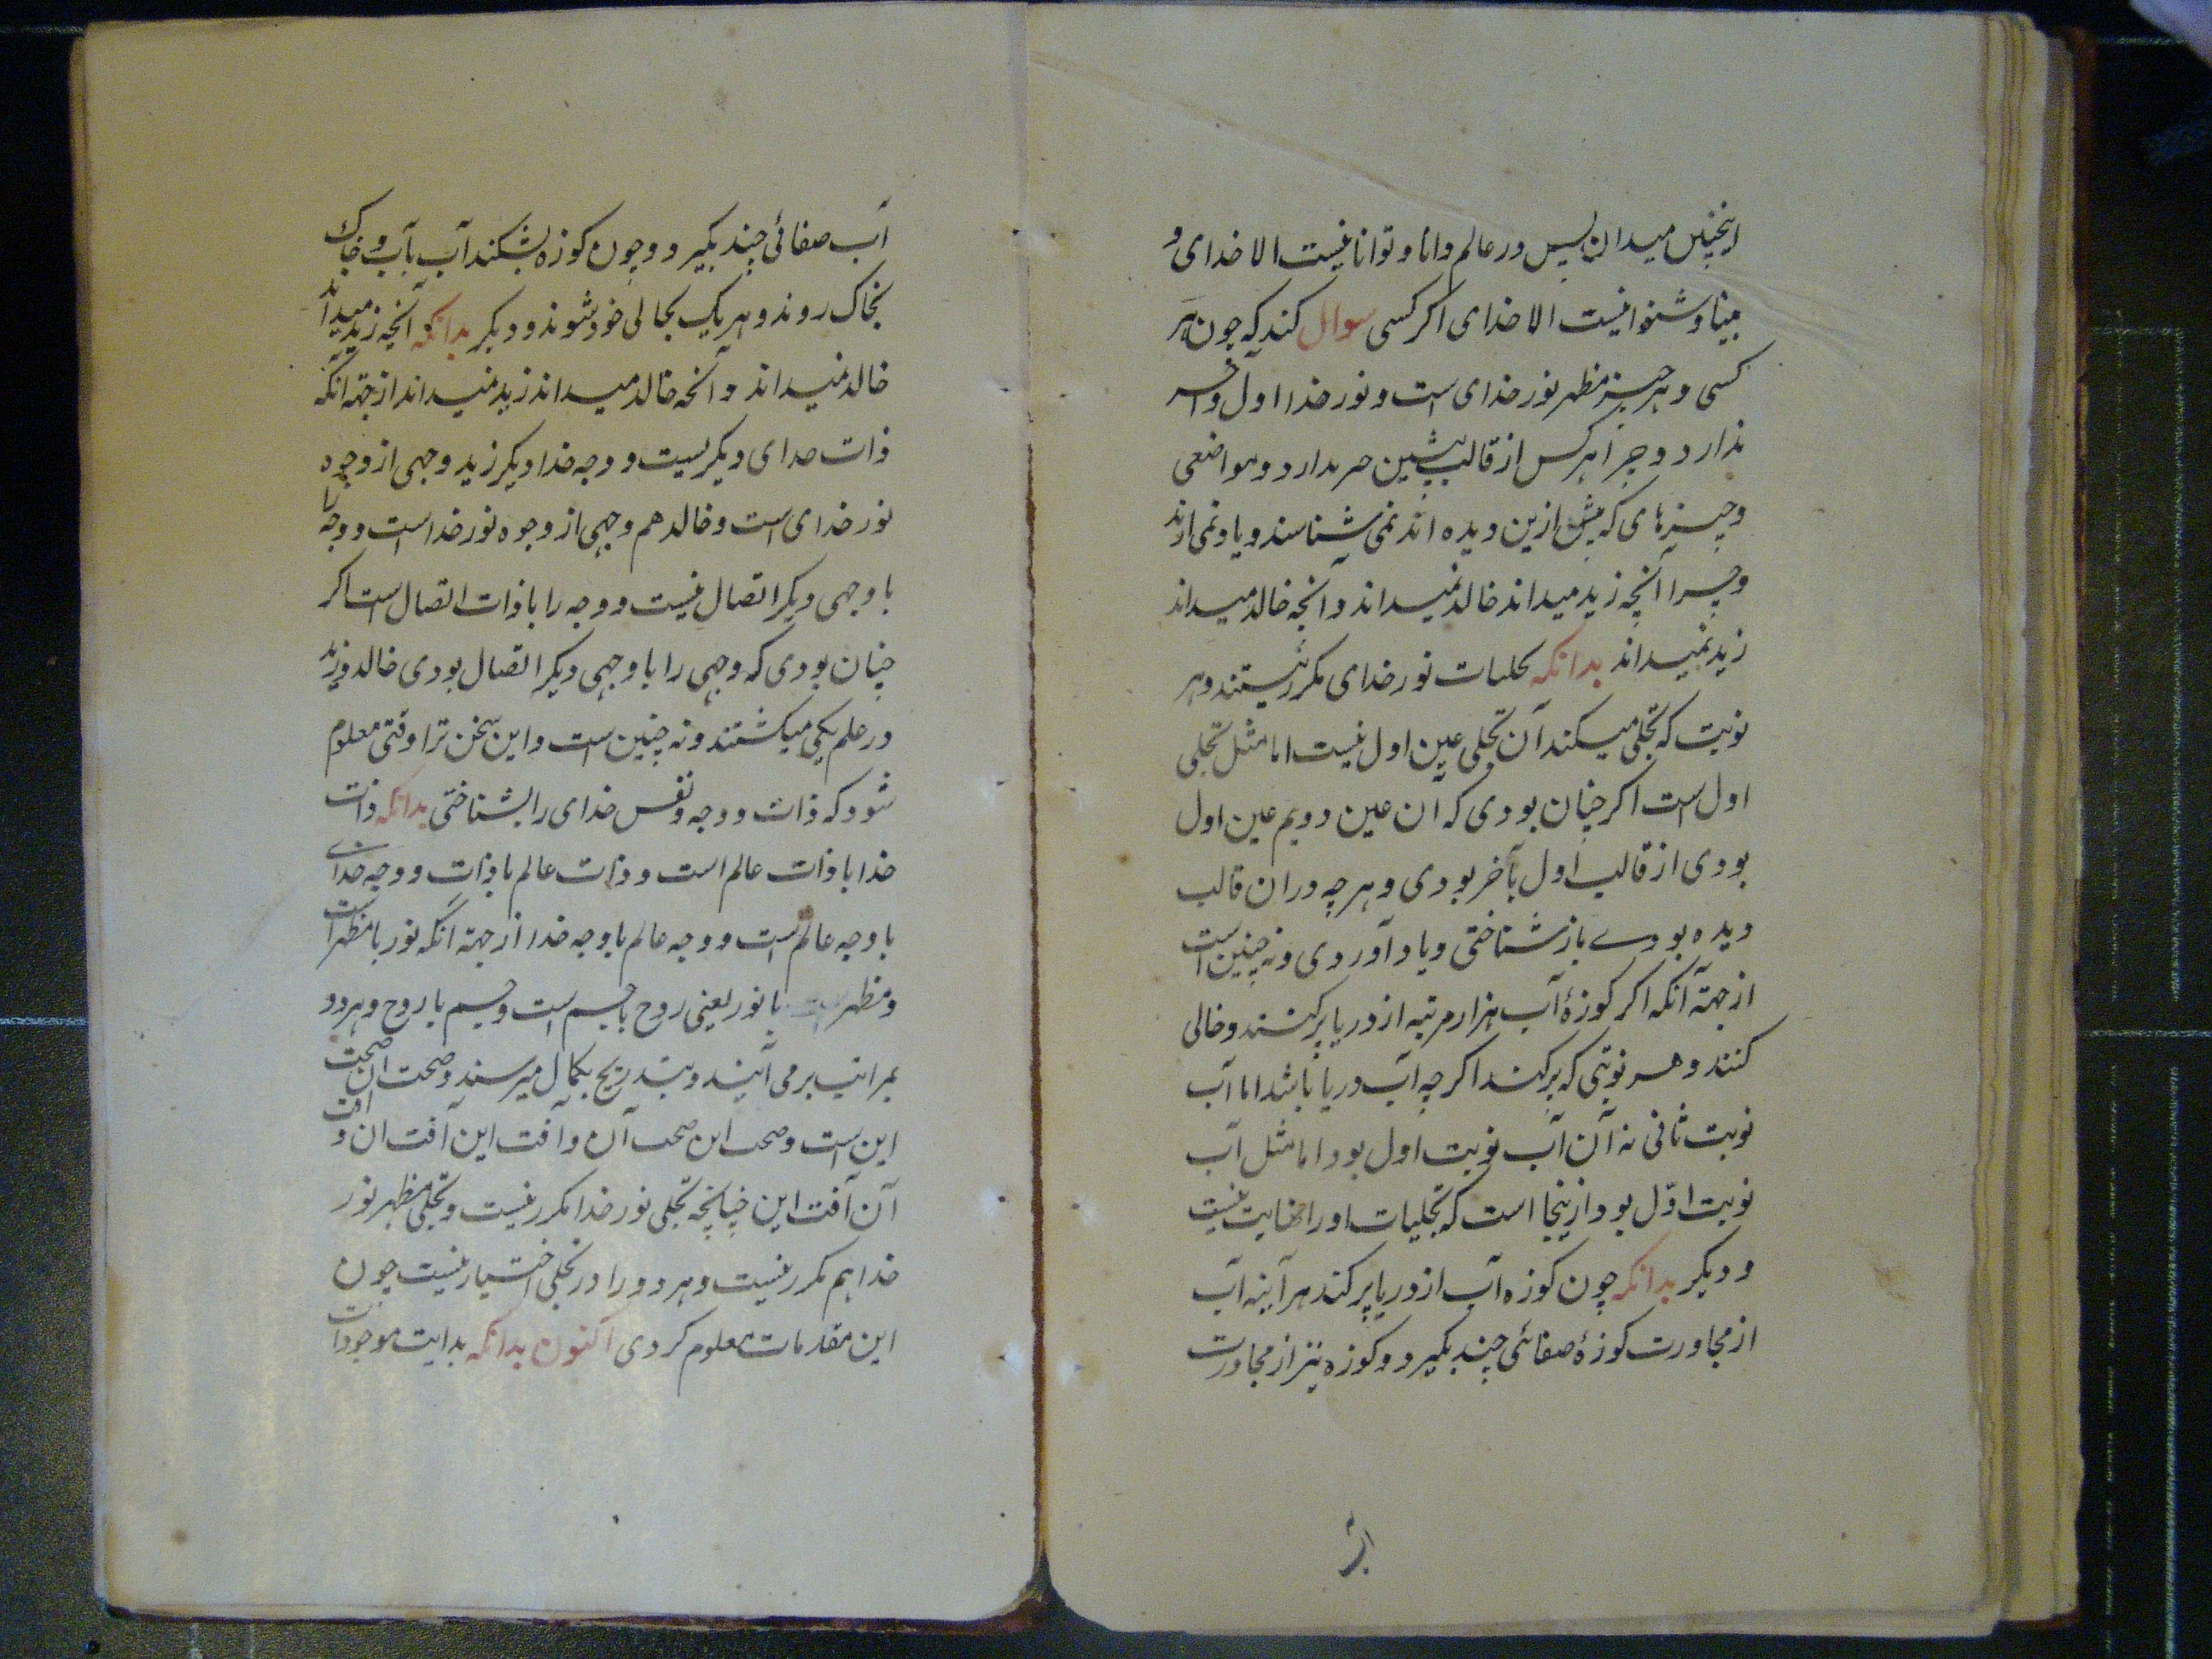 اینچنین میدان پس در عالم دانا و توانا نیست الا خدای و
بینا و شنوا نیست الا خدای اگر کسی سوال کند که چون هر
کسی و هر چیز مظهر نور خدای است و نور خدا اول و آخر
ندارد و چرا هر کس از قالب پیشین خبر ندارد و مواضعی
و چیزهای که پیش ازین دیده اند نمی شناسند و یاد نمی آرند
و چرا آنچه زید میداند خالد نمیداند و آنچه خالد میداند
زید نمیداند بدانکه تجلیات نور خدای مکرر نیستند و هر
نوبت که تجلی میکند آن تجلی عین اول نیست اما مثل تجلی
اول است اگر چنان بودی که ان عین دویم عین اول
بودی از قالب اول بآخر بودی و هر چه در ان قالب
دیده بودی باز شناختی و یاد آوردی و نه چنین است
از جهة آنکه اگر کوزهٔ آب هزار مرتبه از دریا پر کنند و خالی
کنند و هر نوبتی که پر کنند اگر چه آب دریا باشد اما آب
نوبت ثانی نه آن آب نوبت اول بود اما مثل آب
نوبت اوّل بود ازینجا است که تجلیات او را نهایت نیست
و دیگر بدانکه چون کوزه آب از دریا پر کند هر آینه آب
از مجاورت کوزهٔ صفائی چند بگیرد و کوزه نیز از مجاورت
آب صفائی چند بگیرد و چون کوزه بشکند آب بآب و خاک
بخاک روند و هر یک بحالی خود شوند و دیگر بدانکه آنچه زید میداند
خالد نمیداند و آنچه خالد میداند زید نمیداند از جهة آنکه
ذات خدای دیگریست و وجه خدا دیگر زید وجهی از وجوه
نور خدای است و خالد هم وجهی از وجوه نور خدا است و وجه را
با وجهی دیگر اتصال نیست و وجه را با ذات اتصال است اگر
چنان بودی که وجهی را با وجهی دیگر اتصال بودی خالد و زید
در علم یکی میگشتند و نه چنین است و این سخن ترا وقتی معلوم
شود که ذات و وجه و نفس خدای را بشناختی بدانکه ذات
خدا با ذات عالم است و ذات عالم با ذات و وجه خدای
با وجه عالم است و وجه عالم با وجه خدا از جهة آنکه نور با مظهر است
و مظهر است با نور یعنی روح با جسم است و جسم با روح و هر دو
بمراتب بر می آیند و بتدریج بکمال میرسند و صحت ان صحت
این است و صحت این صحت آن و آفت این آفت ان و آفت
آن آفت این چنانچه تجلی نور خدا مکرر نیست و تجلی مظهر نور
خدا هم مکرر نیست و هر دو را در تجلی اختیار نیست چون
این مقدمات معلوم کردی اکنون بدانکه بدایت موجودات